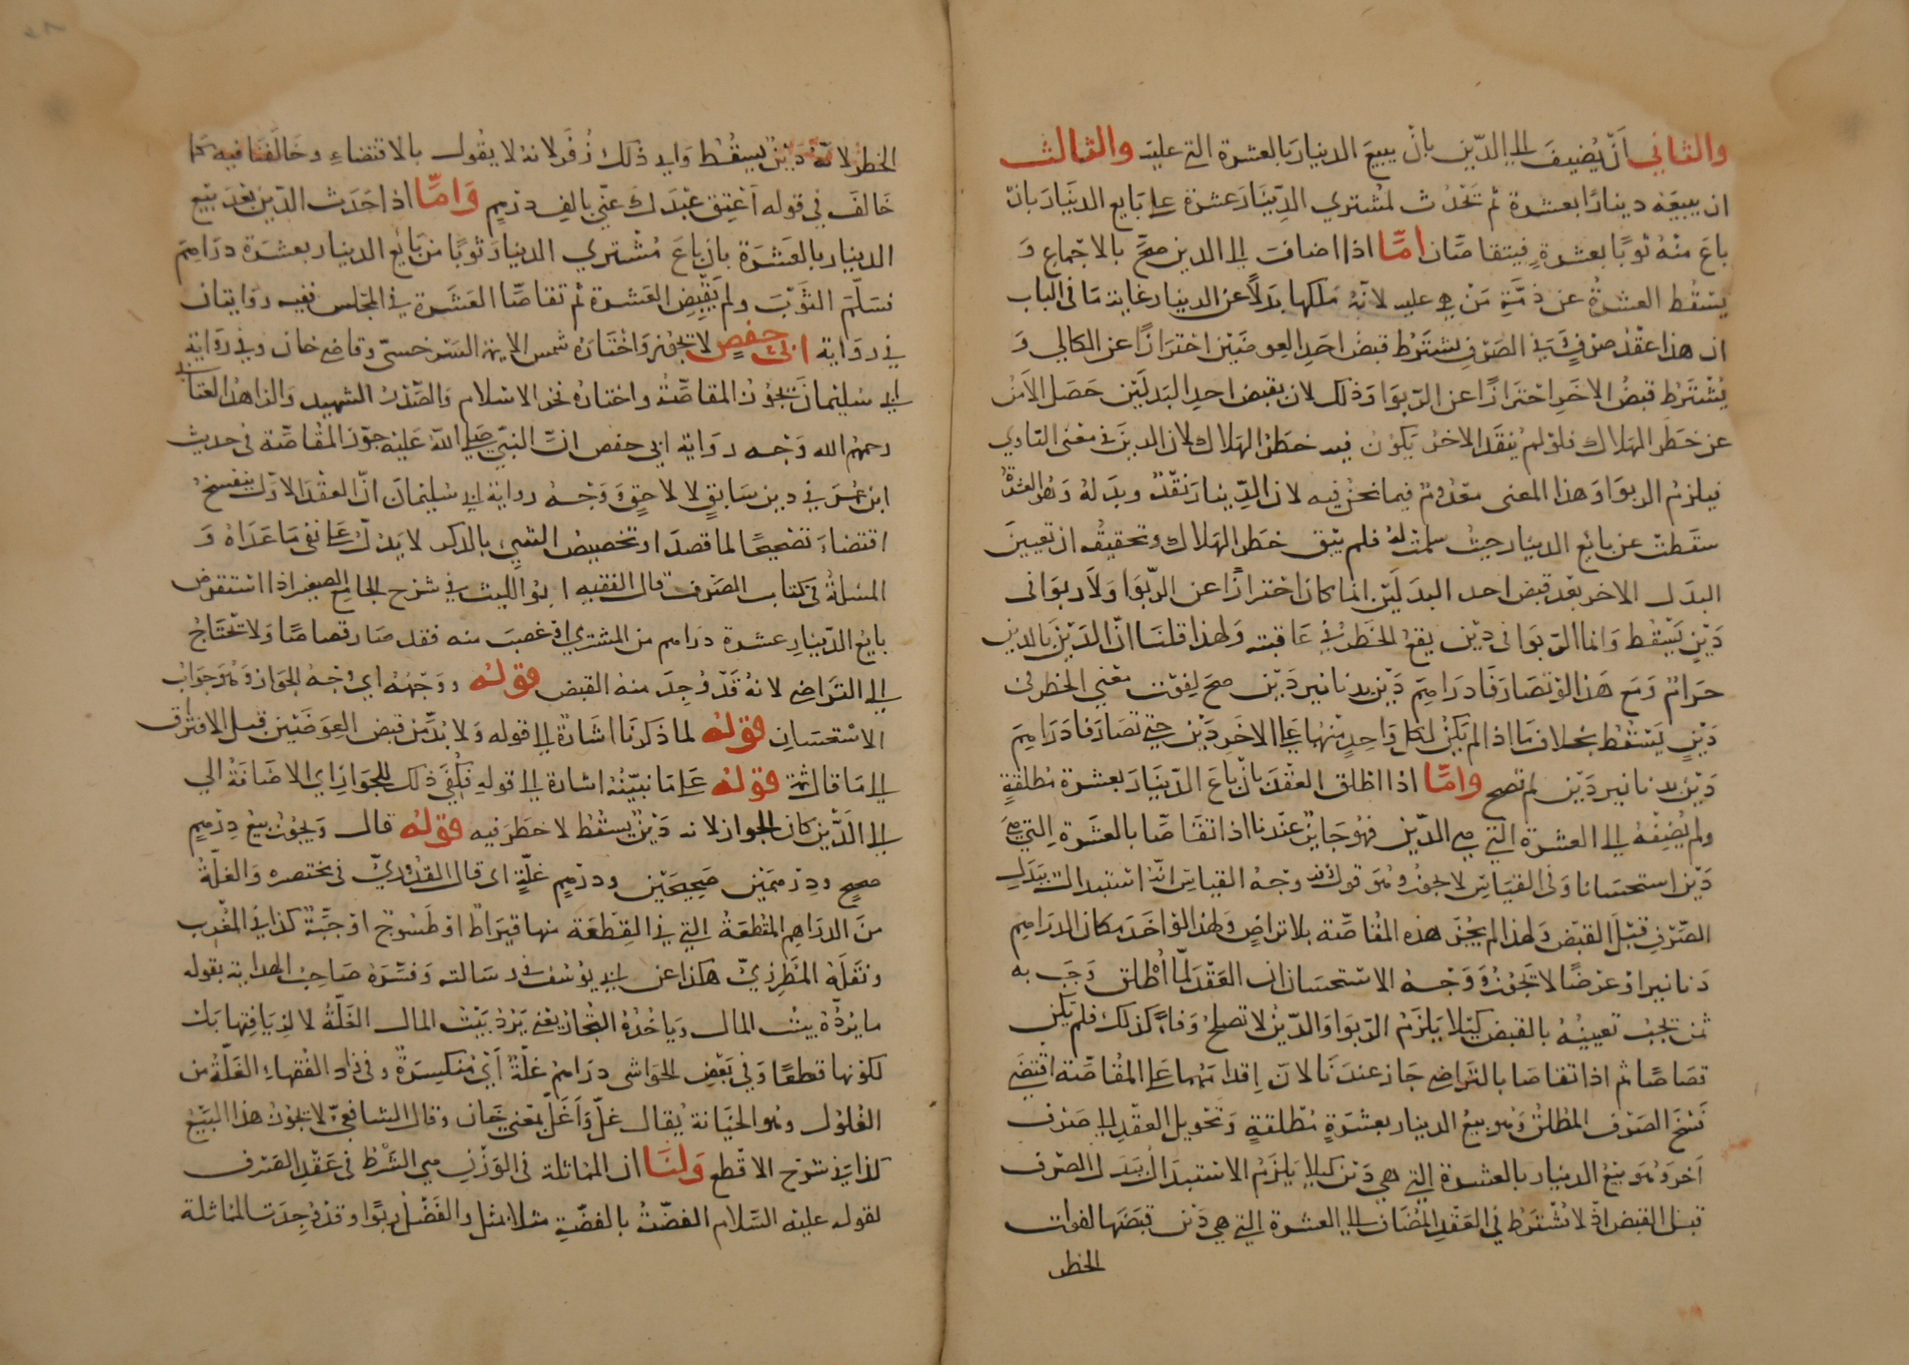 والثاني أن يضيف الى الدين بأن يبيع الدينار بالعشرة التي عليه والثالث
ان يبيعه دينارا بعشرة ثم تحدث لمشتري الدينار عشرة على بايع الدينار بان
باع منه ثوبا بعشرة فيتقاصان اما اذا اضافت الى الدين صح بالاجماع و
يسقط العشرة عن ذمة من هي عليه لانه ملكها بدلا عن الدينار غاية ما في الباب
ان هذا عقد صرف وفي الصرف يشترط قبض احد العوضين احترازا عن الكالي و
يشترط قبض الاخر احترازا عن الربوا وذلك لان بقبض احد البدلين حصل الامن
عن خطر الهلاك فلو لم ينقد الاخر يكون فيه خطر الهلاك لان الدين في معنى التاوي
فيلزم الربوا وهذا المعنى معدوم فيما نحن فيه لان الدينار نقد وبدله وهو العشرة
سقطت عن بايع الدينار حيث سلمت له فلم يبق خطر الهلاك وتحقيقه ان تعيين
البدل الاخر بعد قبض احد البدلين انما كان احترازا عن الربوا ولا ربوا في
دين يسقط وانما الربوا في دين يقع الخطر في عاقبته ولهذا قلنا ان الدين بالدين
حرام ومع هذا لو تصارفا دراهم دين بدنانير دين صح لفوت معنى الخطر في
دين يسقط بخلاف ما اذا لم يكن لكل واحد منهما على الاخر دين حتى تصارفا دراهم
دين بدنانير دين لم تصح واما اذا اطلق العقد بان باع الدينار بعشرة مطلقة
ولم يضفه الى العشرة التي هي الدين فهو جايز عندنا اذا تقاصا بالعشرة التي هي
دين استحسانا وفي القياس لا يجوز وهو قول زفر وجه القياس انه استبدال ببدل
الصرف قبل القبض ولهذا لم يجز هذه المقاصة بلا تراض ولهذا لو اخذ مكان الدراهم
دنانير او عرضا لا تجوز ووجه الاستحسان ان العقد لما اطلق وجب به
ثمن يجب تعيينه بالقبض كيلا يلزم الربوا والدين لا تصلح وفاء كذلك فلم يكن
تصاصا ثم اذا تقاصا بالتراضي جاز عندنا لان اقدامهما على المقاصة اقتضى
فسخ الصرف المطلق وهو بيع الدينار بعشرة مطلقة وتحويل العقد الى صرف
آخر وهو بيع الدينار بالعشرة التي هي دين كيلا يلزم الاستبدال ببدل الصرف
قبل القبض اذ لا يشترط في العقد المضاف الى العشرة التي هي دين قبضها لفوات
الخطر
الخطر لانه دين يسقط وابى ذلك زفر لانه لا يقول بالاقتضاء وخالفنا فيه كما
خالف في قوله اعتق عبدك عني بالف درهم واما اذا احدث الدين بعد بيع
الدينار بالعشرة بان باع مشتري الدينار ثوبا من بايع الدينار بعشرة دراهم
فسلم الثوب ولم يقبض العشرة ثم تقاصا العشرة في المجلس ففيه روايتان
في رواية ابى حفص لا تجوز واختاره شمس الايمة السرخسي وقاضي خان وفي رواية
ابي سليمان تجوز المقاصة واختاره فخر الاسلام والصدر الشهيد والزاهد العتابي
رحمهم الله وجه رواية ابي حفص ان النبي صلى الله عليه جوز المقاصة في حديث
ابن عمر في دين سابق لا لاحق ووجه رواية ابي سليمان ان العقد الاول ينفسخ
اقتضاء تصحيحا لما قصدا وتخصيص الشيء بالذكر لا يدل على نفى ما عداه و
المسئلة في كتاب الصرف قال الفقيه ابو الليث في شرح الجامع الصغير اذا استقرض
بايع الدينار عشرة دراهم من المشتري او غصب منه فقد صار قصاصا ولا تحتاج
الى التراضي لانه قد وجد منه القبض قوله ووجهه اي وجه الجواز وهو جواب
الاستحسان قوله لما ذكرنا اشارة الى قوله ولا بد من قبض العوضين قبل الافتراق
الى ما قال ثمة قوله على ما نبينه اشارة الى قوله فكفى ذلك للجواز اي الاضافة الى
الى الدين كان الجواز لانه دين يسقط لا خطر فيه قوله قال ويجوز بيع درهم
صحيح ودرهمين صحيحين ودرهم غلة اى قال القدوري في مختصره والغلة
من الدراهم المقطعة التي في القطعة منها قيراط او طسوج او حبة كذا في المغرب
ونقله المطرزي هكذا عن ابي يوسف في رسالته وفسره صاحب الهداية بقوله
ما يرده بيت المال وياخذه التجار يعني يرد بيت المال الغلة لا لزيافتها بل
لكونها قطعا وفي بعض الحواشى دراهم غلة أي منكسرة وفى زاد الفقهاء الغلة من
الغلول وهو الخيانة يقال غل واغل بمعنى خان وقال الشافعي لا تجوز هذا البيع
كذا في شرح الاقطع ولنا ان المماثلة في الوزن هي الشرط في عقد الصرف
لقوله عليه السلام الفضة بالفضة مثلا بمثل والفضل ربوا وقد وجدت المماثلة